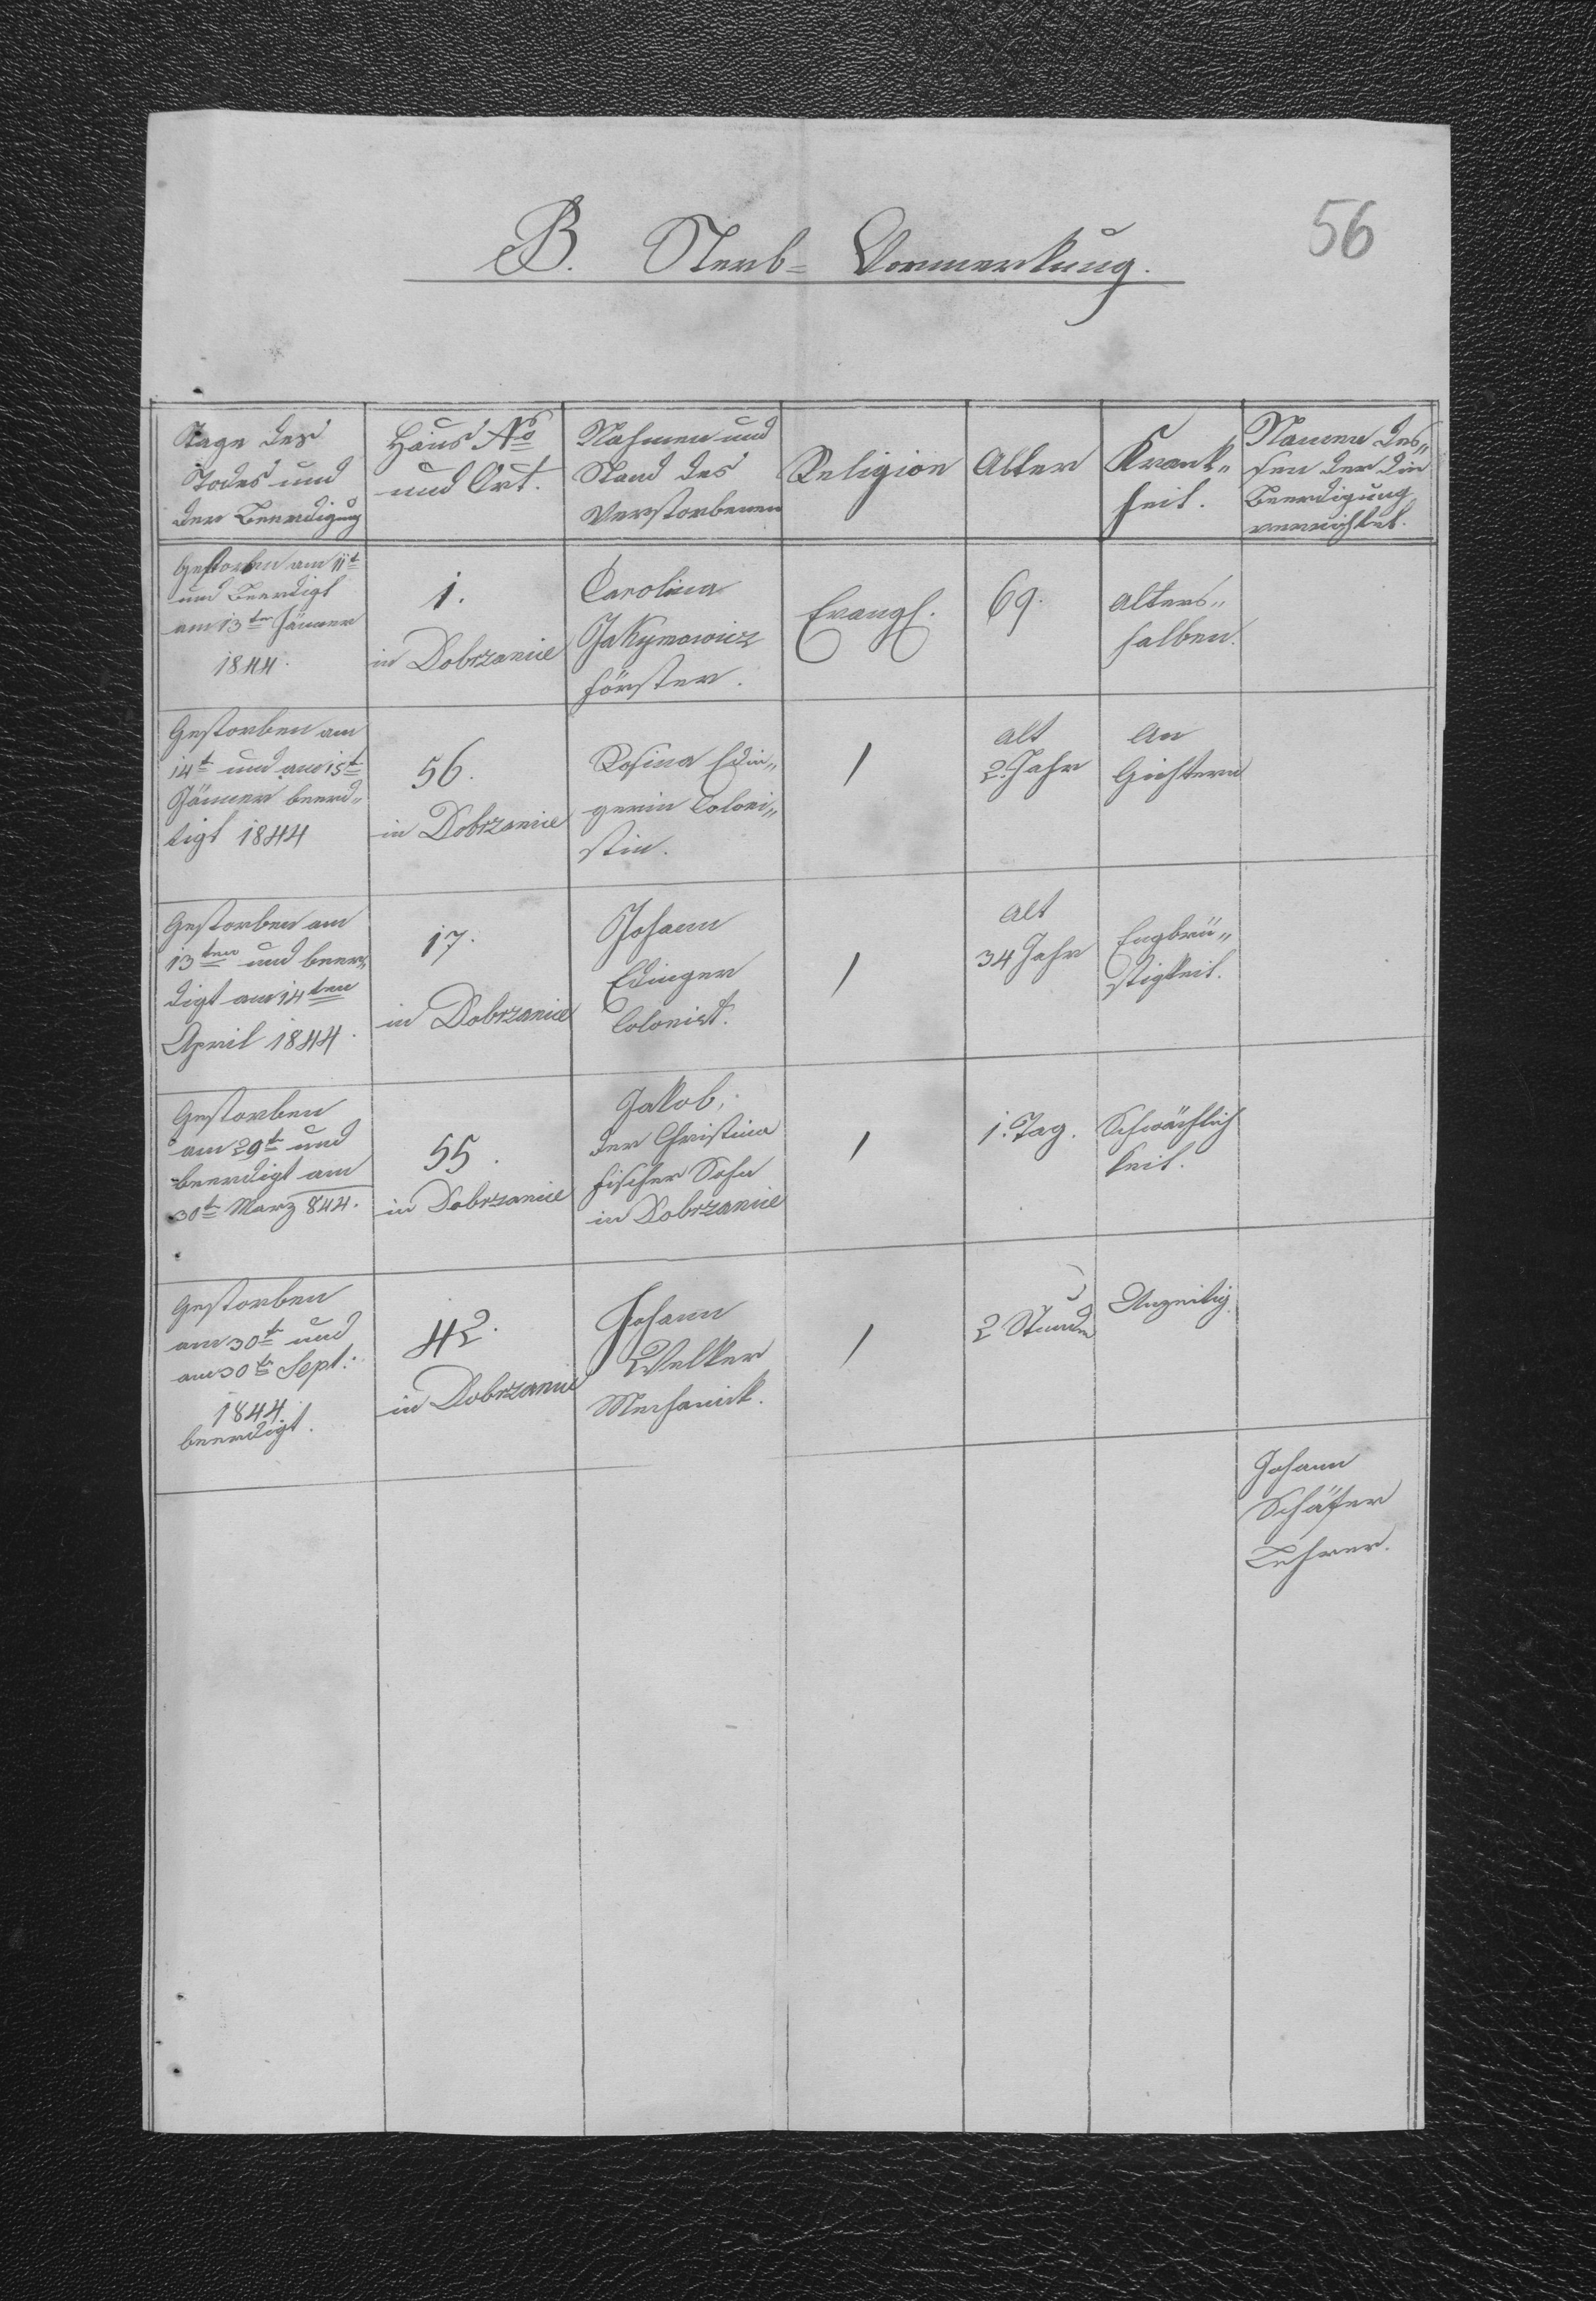 56
B. Sterb= Vormerkung.
Tage des
Todes und
der Beerdigung
Haus No
und Ort.
Nahmen und
Stand des
Verstorbenen
Religion
Alter
Krank„
heit.
Namen des„
sen der die
Beerdigung
verrichtet.
Gestorben am 11t
und Beerdigt
am 13ten Jänner
1844.
1.
in Dobrzanice
Carolina
Jakymowicz
Förster.
Evangl.
69.
Alters„
halben.
Gestorben am
14t und am 15t
Jänner beerd„
tigt 1844
56.
in Dobrzanice
Rosina Edin„
gerin Coloni„
stin.
/
Alt
2. Jahr
An
Gichtern
Gestorben am
13ten und beer„
digt am 14ten
April 1844.
17.
in Dobrzanice
Johann
Edinger
Colonist.
/
Alt
34 Jahr
Engbrü„
stigkeit.
Gestorben
am 29t und
beerdigt am
30t März 844.
55.
in Dobrzanice
Jakob,
der Christina
Fischer Sohn
in Dobrzanice
/
1. Tag.
Schwächlich
keit.
Gestorben
am 30t und
am 30t Sept:
1844.
beerdigt.
42.
in Dobrzanice
Johann
Welker
Mechanick.
/
2 Stunden
Unzeitig.
Johann
Schäfer
Lehrer.